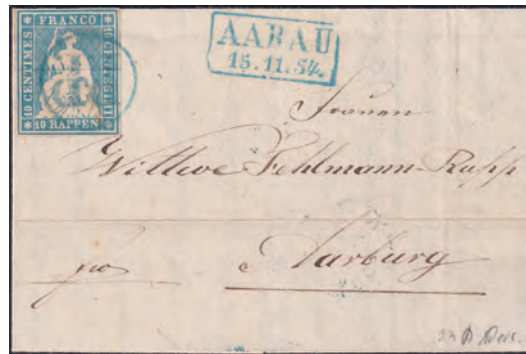 FRANCO
10 CENTIMES
10 CENTESIMI
10 RAPPEN
AARAU
15.11.54.
Frauen
Wittwe Fehlmann-Rupp
pro
Aarburg